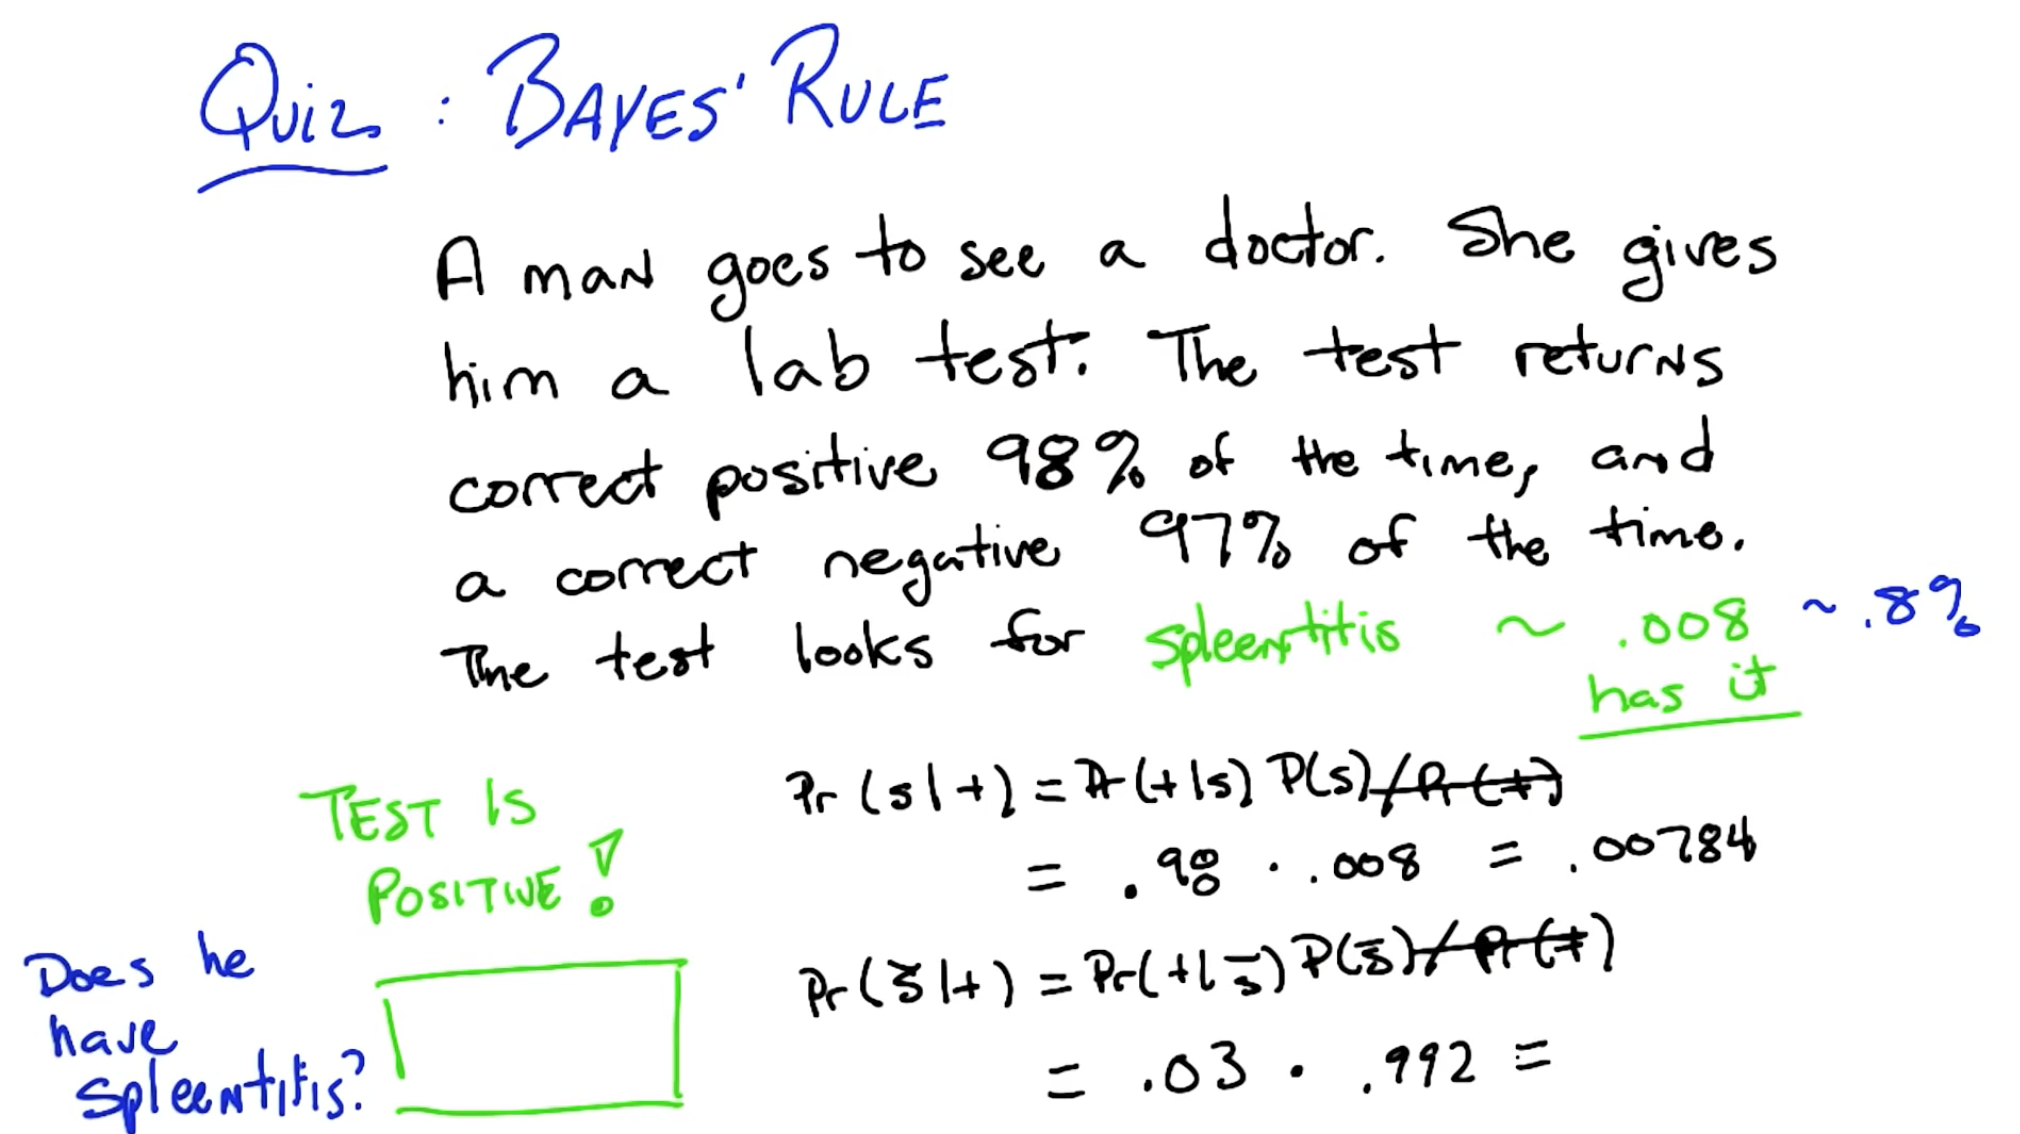 Quiz : BAYES' RULE
A man goes to see a doctor. She gives
him a lab test. The test returns
correct positive 98% of the time, and
a correct negative 97% of the time.
The test looks for spleentitis ~ .008 ~ .8%
has it
TEST IS
POSITIVE!
Does he
have
spleentitis?
Pr(s|+) = Pr(+|s) P(s)/Pr(+)
= .98 · .008 = .00784
Pr(s̄|+) = Pr(+|s̄) P(s̄)/Pr(+)
= .03 · .992 =